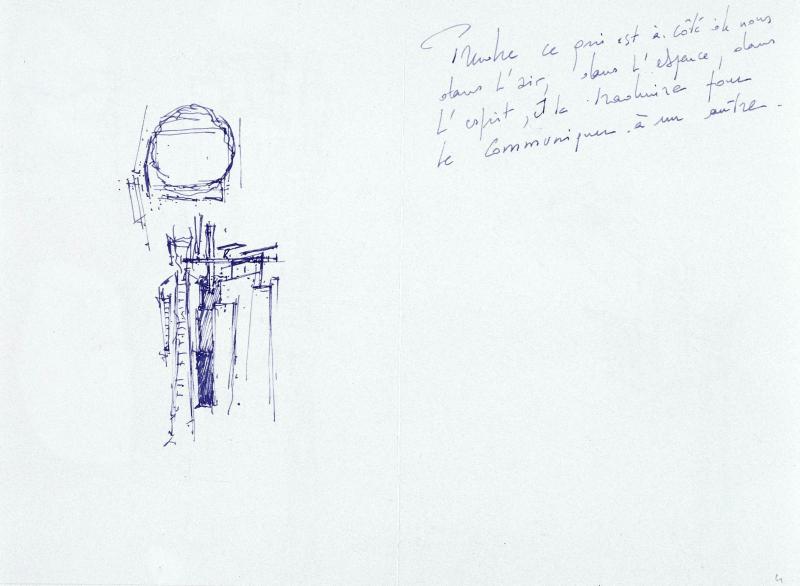 Prendre ce qui est à côté de nous
dans L'air, dans L'espace, dans
L'esprit, et le traduire pour
le communiquer à un autre.